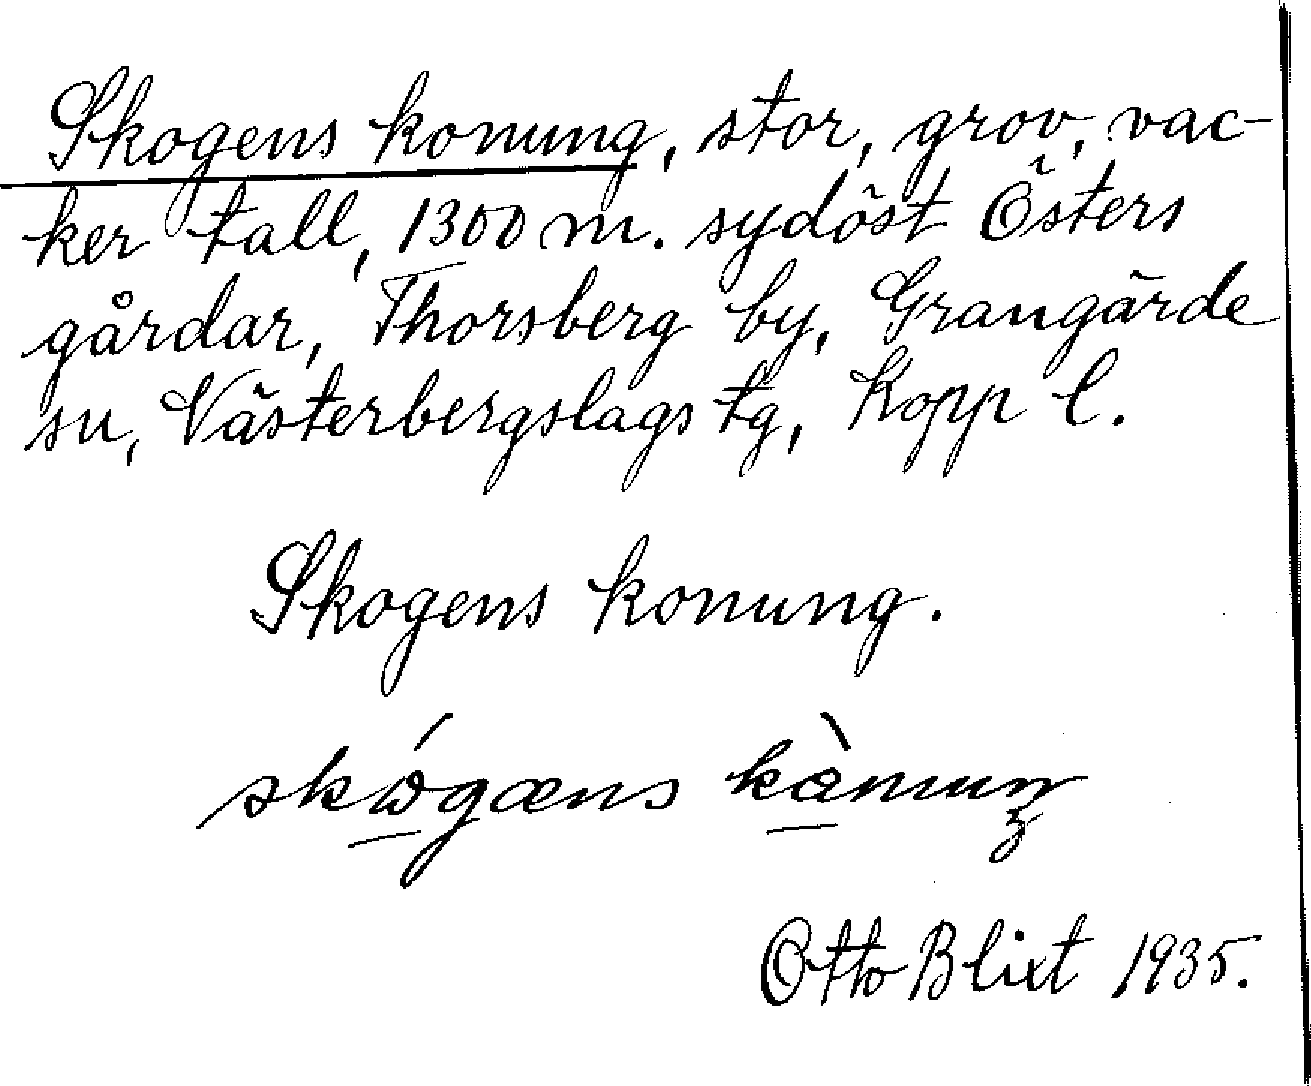 Skogens konung, stor, grov, vac-
ker tall, 1300 m. sydöst Östers
gårdar, Thorsberg by, Grangärde
sn, Västerbergslags tg, Kopp l.
Skogens konung.
Otto Blixt 1935.